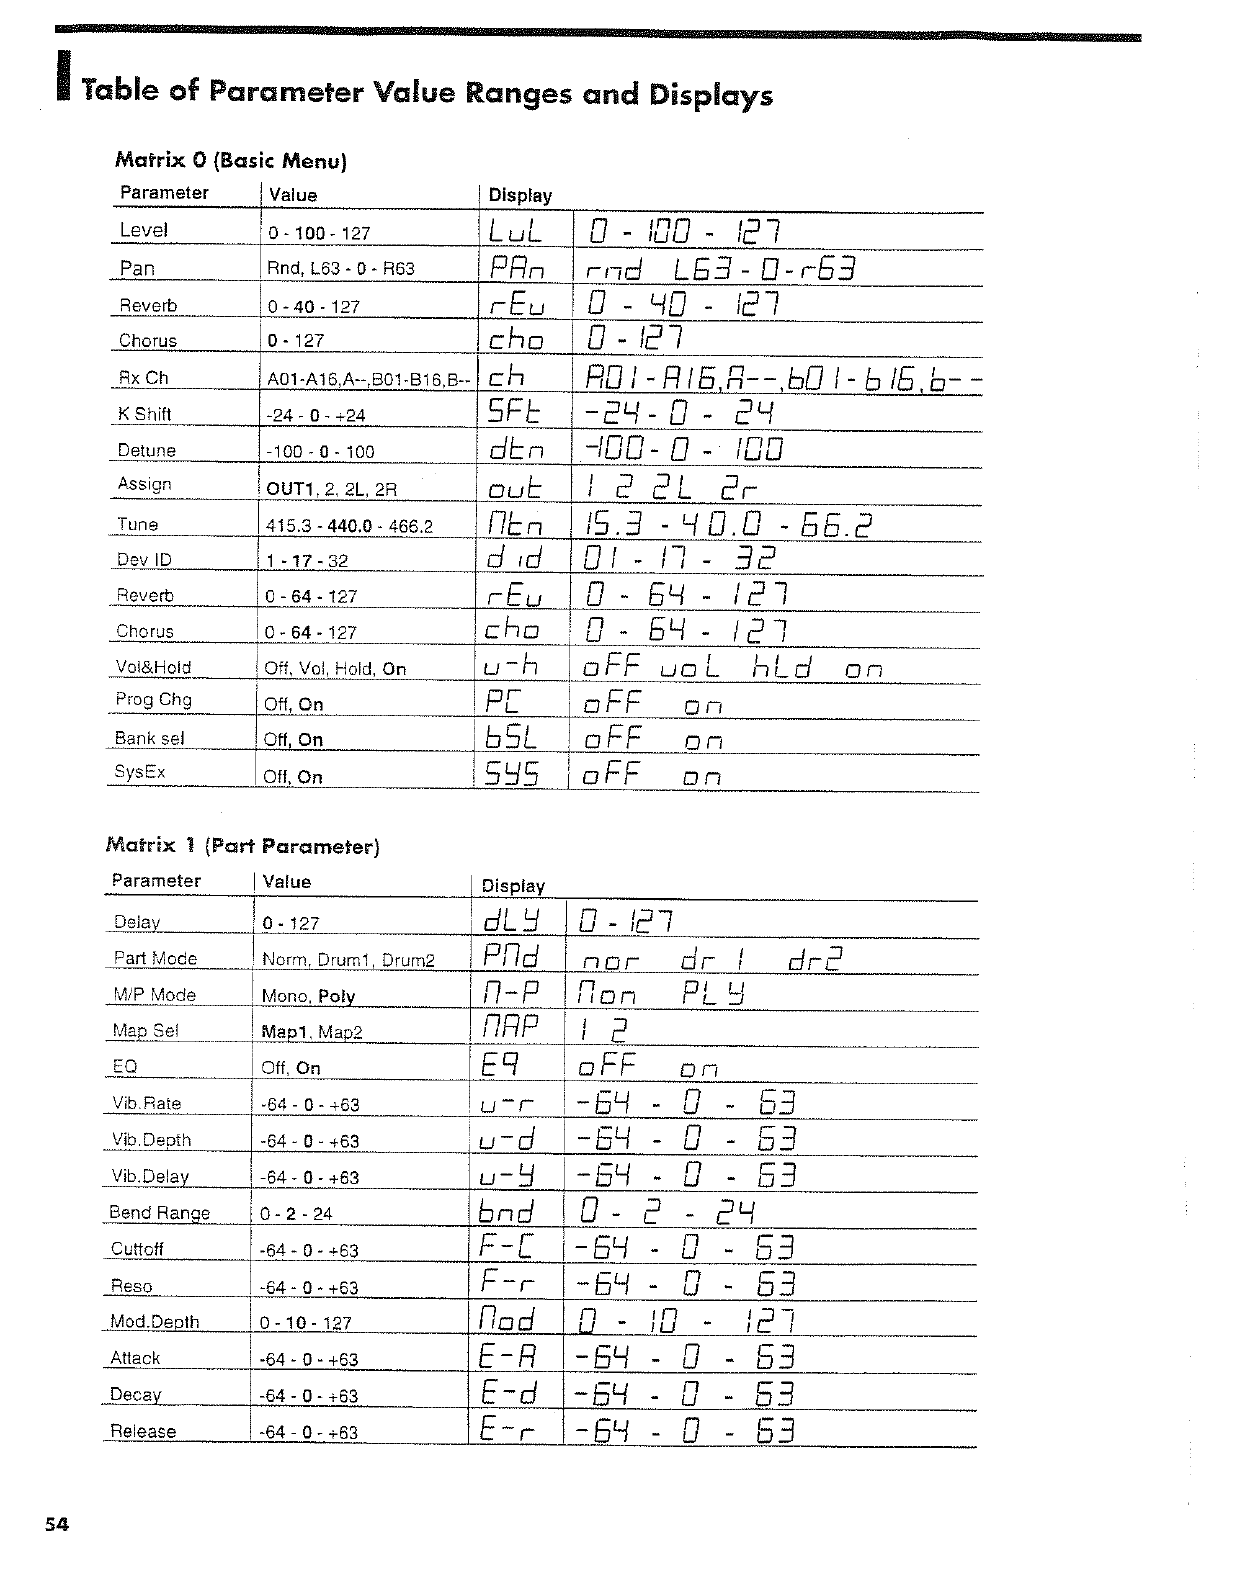 Table of Parameter Value Ranges and Displays
Matrix 0 (Basic Menu)
Parameter Value Display
Level 0 - 100 - 127 LuL 0 - 100 - 127
Pan Rnd, L63 - 0 - R63 PAn rnd L63 - 0 - r63
Reverb 0 - 40 - 127 rEu 0 - 40 - 127
Chorus 0 - 127 cho 0 - 127
Rx Ch A01-A16,A--,B01-B16,B-- ch A01-A16,A--,b01-b16,b--
K Shift -24 - 0 - +24 SFt -24 - 0 - 24
Detune -100 - 0 - 100 dtn -100 - 0 - 100
Assign OUT1, 2, 2L, 2R out 1 2 2L 2r
Tune 415.3 - 440.0 - 466.2 ntn 15.3 - 40.0 - 66.2
Dev ID 1 - 17 - 32 d id 01 - 17 - 32
Reverb 0 - 64 - 127 rEu 0 - 64 - 127
Chorus 0 - 64 - 127 cho 0 - 64 - 127
Vol&Hold Off, Vol, Hold, On u-h oFF uoL hLd on
Prog Chg Off, On PC oFF on
Bank sel Off, On bSL oFF on
SysEx Off, On SYS oFF on
Matrix 1 (Part Parameter)
Parameter Value Display
Delay 0 - 127 dLY 0 - 127
Part Mode Norm, Drum1, Drum2 Pnd nor dr 1 dr2
M/P Mode Mono, Poly n-P non PLY
Map Sel Map1, Map2 nAP 1 2
EQ Off, On Eq oFF on
Vib.Rate -64 - 0 - +63 u-r -64 - 0 - 63
Vib.Depth -64 - 0 - +63 u-d -64 - 0 - 63
Vib.Delay -64 - 0 - +63 u-y -64 - 0 - 63
Bend Range 0 - 2 - 24 bnd 0 - 2 - 24
Cuttoff -64 - 0 - +63 F-C -64 - 0 - 63
Reso -64 - 0 - +63 F-r -64 - 0 - 63
Mod.Depth 0 - 10 - 127 nod 0 - 10 - 127
Attack -64 - 0 - +63 E-A -64 - 0 - 63
Decay -64 - 0 - +63 E-d -64 - 0 - 63
Release -64 - 0 - +63 E-r -64 - 0 - 63
54